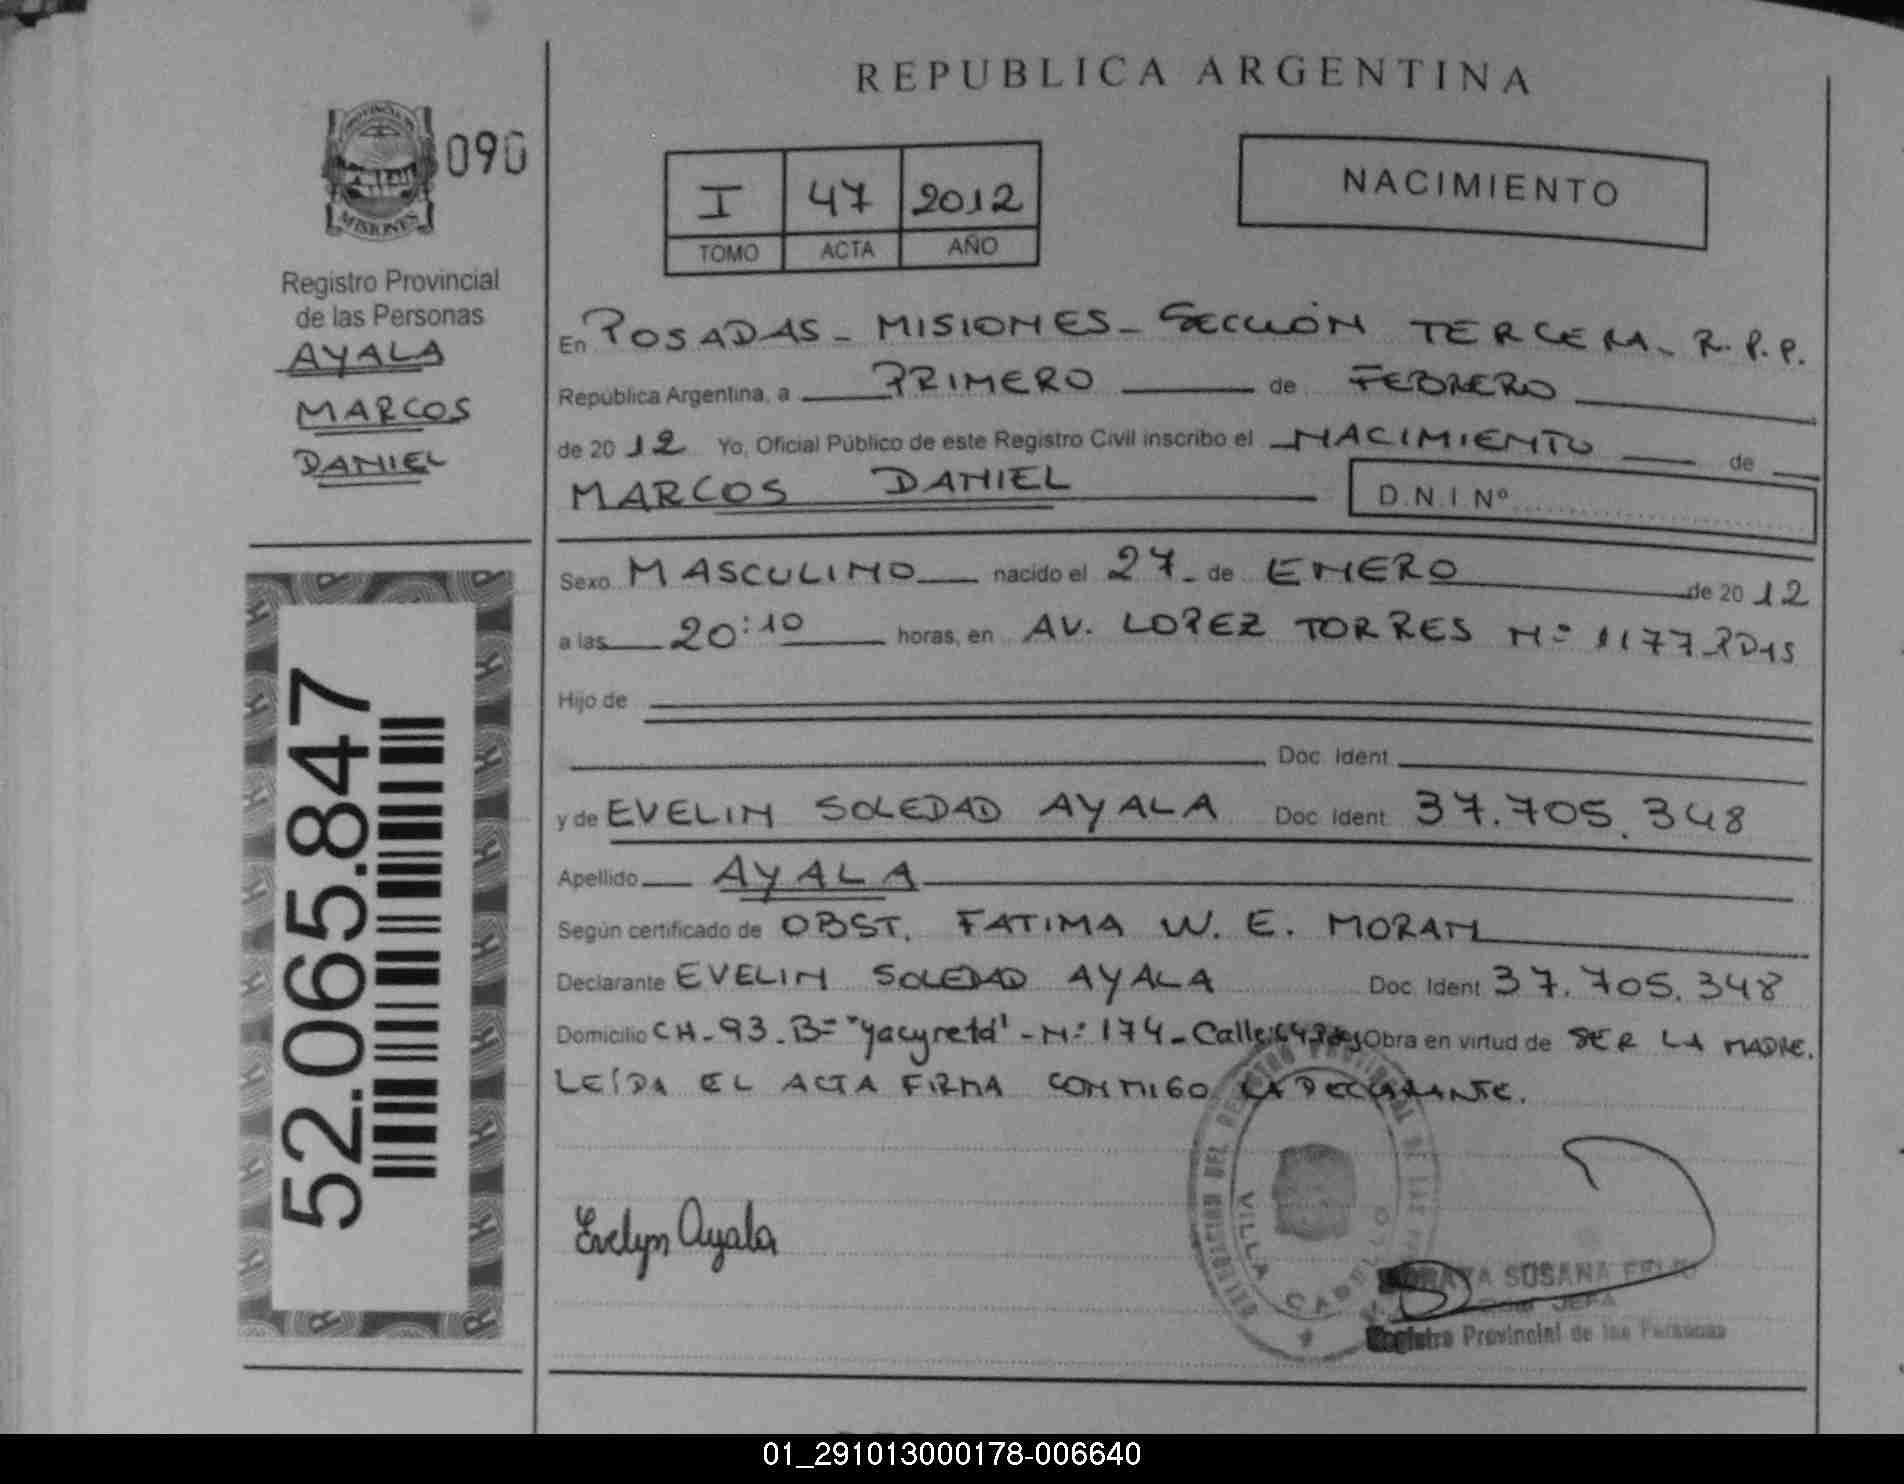 REPUBLICA ARGENTINA
PROVINCIA DE
MISIONES
090
I 47 2012
TOMO ACTA AÑO
NACIMIENTO
Registro Provincial
de las Personas
AYALA
MARCOS
DANIEL
52.065.847
En POSADAS - MISIONES - SECCIÓN TERCERA - R.P.P.
República Argentina, a PRIMERO de FEBRERO
de 2012 Yo, Oficial Público de este Registro Civil inscribo el NACIMIENTO de
MARCOS DANIEL D.N.I Nº
Sexo MASCULINO nacido el 27 - de ENERO de 2012
a las 20:10 horas, en AV. LOPEZ TORRES Nº 1177 - PDAS
Hijo de
Doc. Ident.
y de EVELIN SOLEDAD AYALA Doc. Ident. 37.705.348
Apellido AYALA
Según certificado de OBST. FATIMA W. E. MORAN
Declarante EVELIN SOLEDAD AYALA Doc. Ident. 37.705.348
Domicilio CH - 93 - Bº "Yacyretá" - Nº 174 - Calle Obra en virtud de SER LA MADRE.
LEÍDA EL ACTA FIRMA CONMIGO LA DECLARANTE.
Evelyn Ayala
VILLA CABELLO
SUSANA
JEFA
Registro Provincial de las Personas
01_291013000178-006640